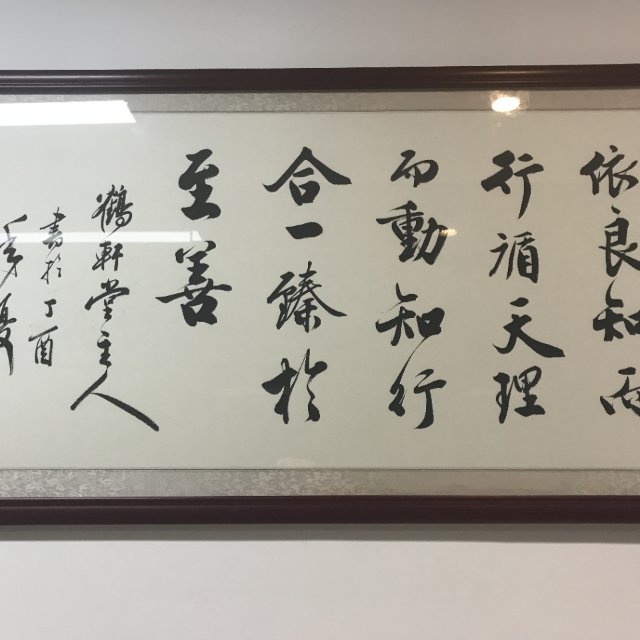 依良知而
行循天理
而動知行
合一臻於
至善
鶴軒堂主人
書於丁酉
夏